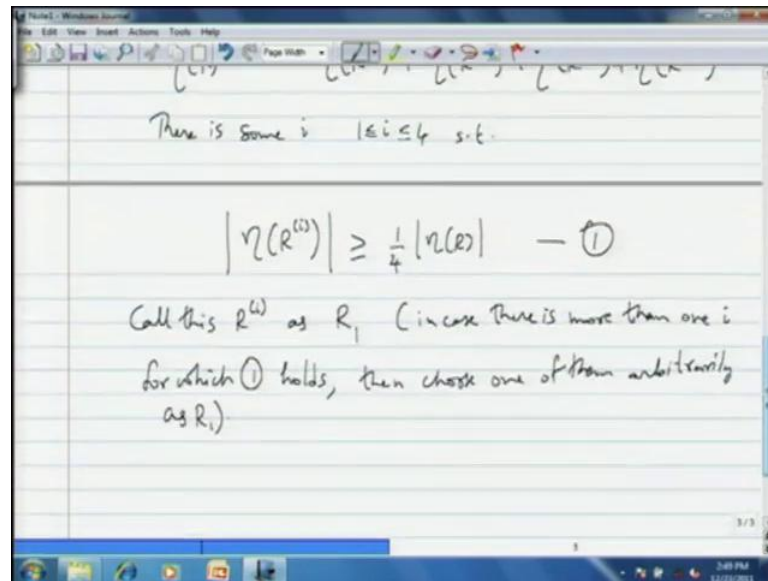 Note1 - Windows Journal
File Edit View Insert Actions Tools Help
Page Width
There is some i 1 ≤ i ≤ 4 s.t.
|η(R^(i))| ≥ 1/4 |η(R)| — ①
Call this R^(i) as R_1 (in case there is more than one i
for which ① holds, then choose one of them arbitrarily
as R_1).
3/3
5
2:49 PM